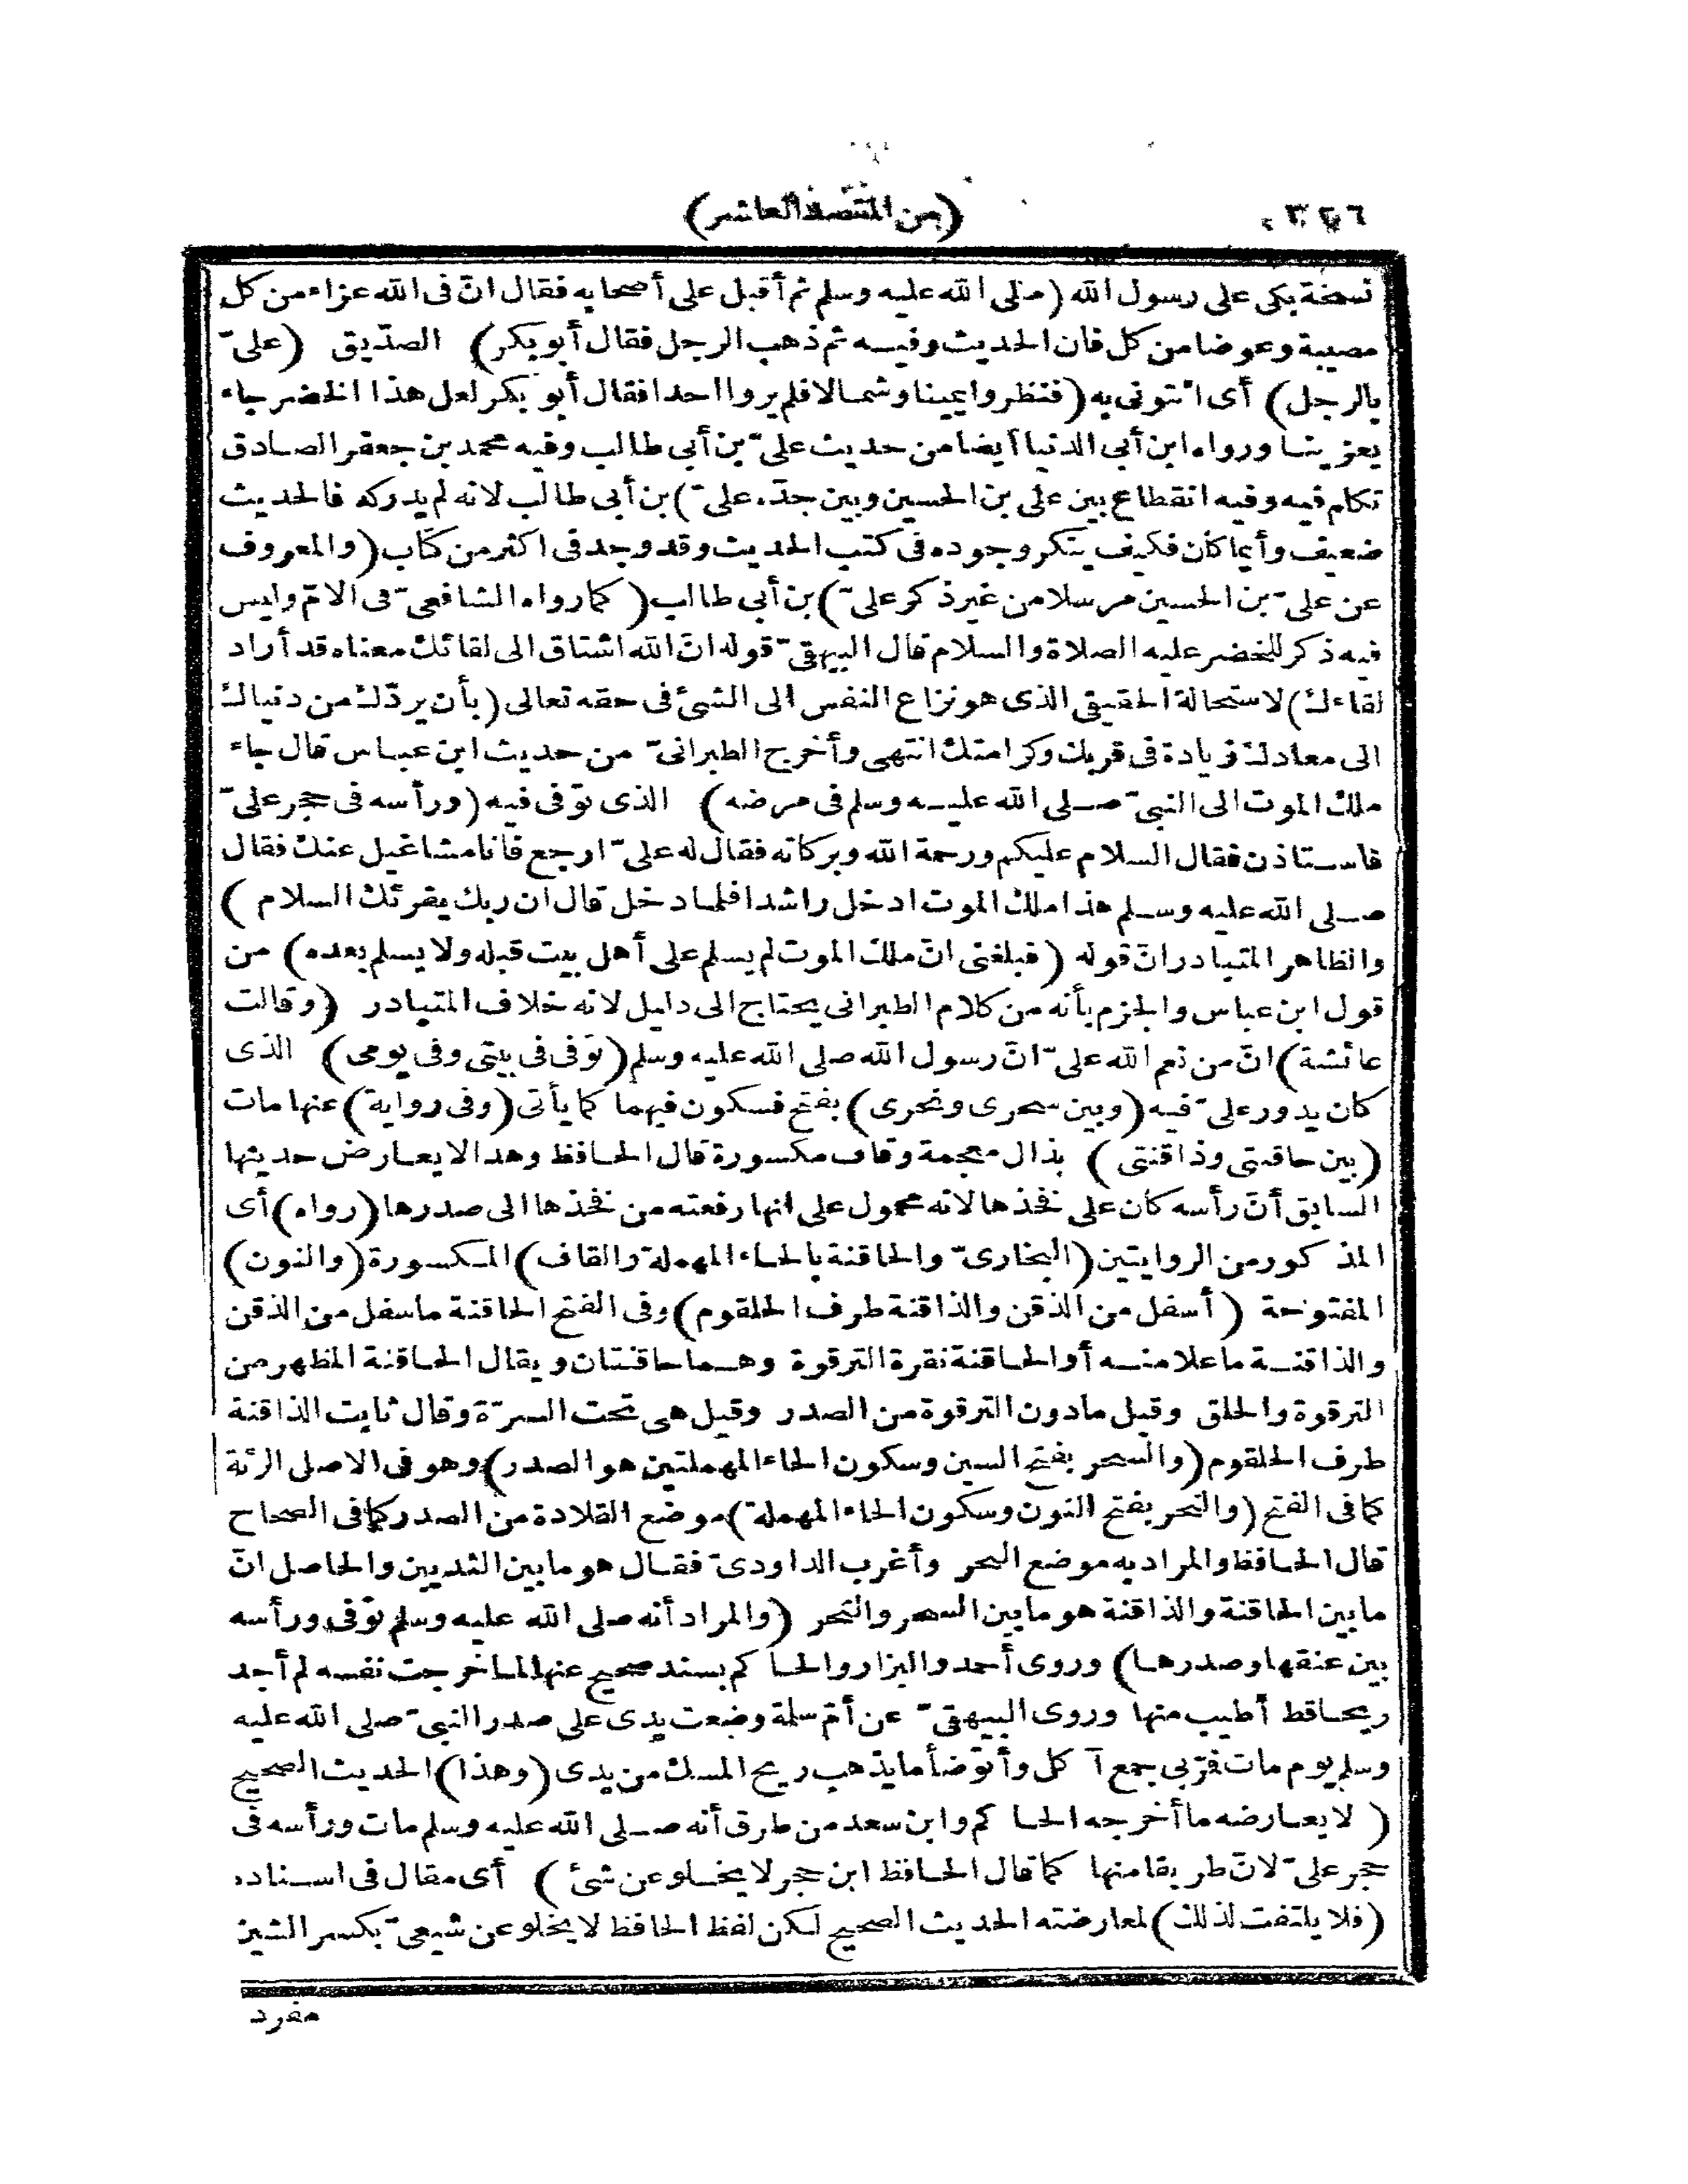 (من المقصد العاشر)
نسخة يكى على رسول الله (صلى الله عليه وسلم ثم أقبل على أصحابه فقال انّ فى الله عزاء من كل
مصيبة وعوضا من كل فان الحديث وفيه ثم ذهب الرجل فقال أبو بكر) الصدّيق (علىّ
بالرجل) أى ائتونى به (فنظروا يمينا وشمالا فلم يروا احدا فقال أبو بكر لعل هذا الخضر جاء
يعزينا ورواه ابن أبي الدنيا أيضا من حديث علىّ بن أبي طالب وفيه محمد بن جعفر الصادق
تكلم فيه وفيه انقطاع بين على بن الحسين وبين جدّه علىّ) بن أبى طالب لانه لم يدركه فالحديث
ضعيف وأيما كان فكيف ينكر وجوده فى كتب الحديث وقد وجد فى اكثر من كتاب (والمعروف
عن علىّ بن الحسين مرسلا من غير ذكر علىّ) بن أبي طالب (كما رواه الشافعىّ فى الامّ وليس
فيه ذكر للخضر عليه الصلاة والسلام قال البيهقىّ قوله انّ الله اشتاق الى لقائك معناه قد أراد
لقاءك) لاستحالة الحقيقى الذى هو نزاع النفس الى الشئ فى حقه تعالى (بأن يردّك من دنياك
الى معادك زيادة فى قربك وكرامتك انتهى وأخرج الطبرانىّ من حديث ابن عباس قال جاء
ملك الموت الى النبىّ صلى الله عليه وسلم فى مرضه) الذى توّفى فيه (ورأسه فى حجر علىّ
فاستاذن فقال السلام عليكم ورحمة الله وبركاته فقال له علىّ ارجع فانا مشاغيل عنك فقال
صلى الله عليه وسلم هذا ملك الموت ادخل راشدا فلما دخل قال ان ربك يقرئك السلام)
والظاهر المتبادر انّ قوله (فبلغنى انّ ملك الموت لم يسلم على أهل بيت قبله ولا يسلم بعده) من
قول ابن عباس والجزم بأنه من كلام الطبرانى يحتاج الى دليل لانه خلاف المتبادر (وقالت
عائشة) انّ من نعم الله علىّ انّ رسول الله صلى الله عليه وسلم (توّفى فى بيتى وفى يومى) الذى
كان يدور علىّ فيه (وبين سحرى ونحرى) بفتح فسكون فيهما كما يأتى (وفى رواية) عنها مات
(بين حاقنتى وذاقنتى) بذال معجمة وقاف مكسورة قال الحافظ وهذا لا يعارض حديثها
السابق أنّ رأسه كان على نفخذها لانه محمول على انها رفعته من نفخذها الى صدرها (رواه) أى
المذكور من الروايتين (البخارىّ والحاقنة بالحاء المهملة والقاف) المكسورة (والنون)
المفتوحة (أسفل من الذقن والذاقنة طرف الحلقوم) وفى الفتح الحاقنة ما سفل من الذقن
والذاقنة ما علا منه أو الحاقنة نقرة الترقوة وهما حاقنتان ويقال الحاقنة المظهر من
الترقوة والحلق وقيل ما دون الترقوة من الصدر وقيل هى تحت السرّة وقال ثابت الذاقنة
طرف الحلقوم (والسحر بفتح السين وسكون الحاء المهملتين هو الصدر) وهو فى الاصل الرئة
كما فى الفتح (والنحر بفتح النون وسكون الحاء المهملة) موضع القلادة من الصدر كما فى الصحاح
قال الحافظ والمراد به موضع النحر وأغرب الداودىّ فقال هو ما بين الثديين والحاصل انّ
ما بين الحاقنة والذاقنة هو ما بين السحر والنحر (والمراد أنه صلى الله عليه وسلم توّفى ورأسه
بين عنقها وصدرها) وروى أحمد والبزار والحاكم بسند صحيح عنها لما خرجت نفسه لم أجد
ريحا قط أطيب منها وروى البيهقىّ عن أمّ سلمة وضعت يدى على صدر النبىّ صلى الله عليه
وسلم يوم مات فمرّ بى جمع آكل وأتوّضأ ما يذهب ريح المسك من يدى (وهذا) الحديث الصحيح
(لا يعارضه ما أخرجه الحاكم وابن سعد من طرق أنه صلى الله عليه وسلم مات ورأسه فى
حجر علىّ لانّ طريقا منها كما قال الحافظ ابن حجر لا يخلو عن شئ) أى مقال فى اسناده
(فلا يلتفت لذلك) لمعارضته الحديث الصحيح لكن لفظ الحافظ لا يخلو عن شيعىّ بكسر الشين
مفرد